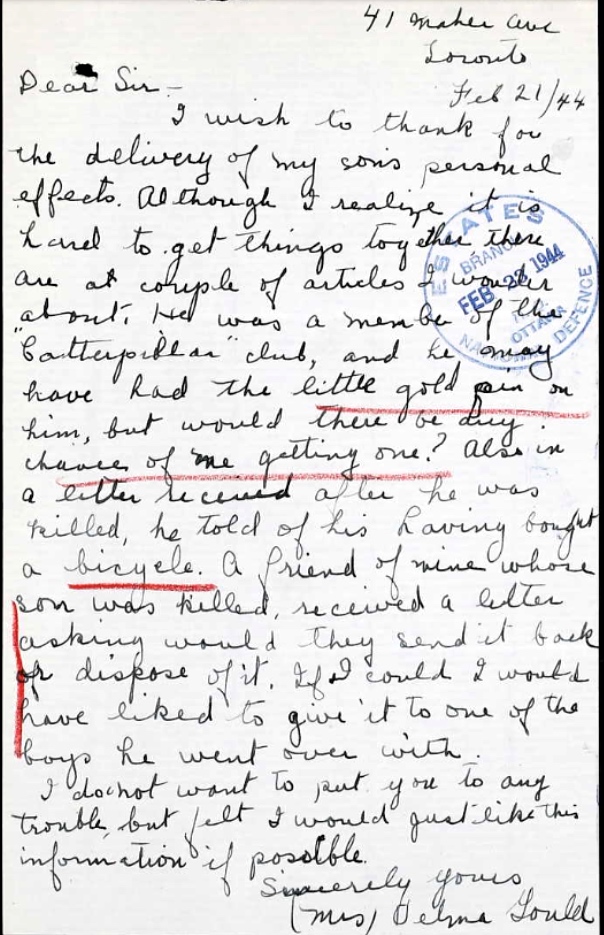 41 Maher Ave
Toronto
Feb 21/44
Dear Sir -
I wish to thank for
the delivery of my sons personal
effects. Although I realize it is
hard to get things together there
are at couple of articles I wonder
about. He was a member of the
"Catterpillar" club, and he may
have had the little gold pin on
him, but would there be any
chances of me getting one? Also in
a letter received after he was
killed, he told of his having bought
a bicycle. A friend of mine whose
son was killed, received a letter
asking would they send it back
or dispose of it. If I could I would
have liked to give it to one of the
boys he went over with.
I do not want to put you to any
trouble, but felt I would just like this
information if possible.
Sincerely yours
(Mrs) Velma Gould
ESTATES
BRANCH
FEB 23 1944
OTTAWA
NATIONAL DEFENCE